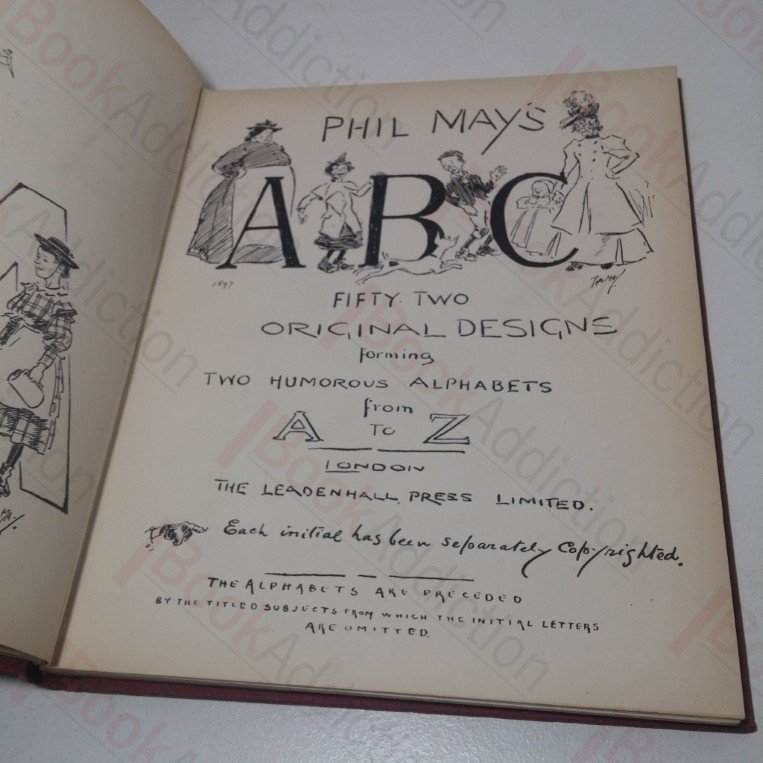 PHIL MAY'S
ABC
1897
PHIL MAY
FIFTY-TWO
ORIGINAL DESIGNS
forming
TWO HUMOROUS ALPHABETS
from
A TO Z
LONDON
THE LEADENHALL PRESS LIMITED.
Each initial has been separately Copyrighted.
THE ALPHABETS ARE PRECEDED
BY THE TITLED SUBJECTS FROM WHICH THE INITIAL LETTERS
ARE OMITTED.
BookAddiction